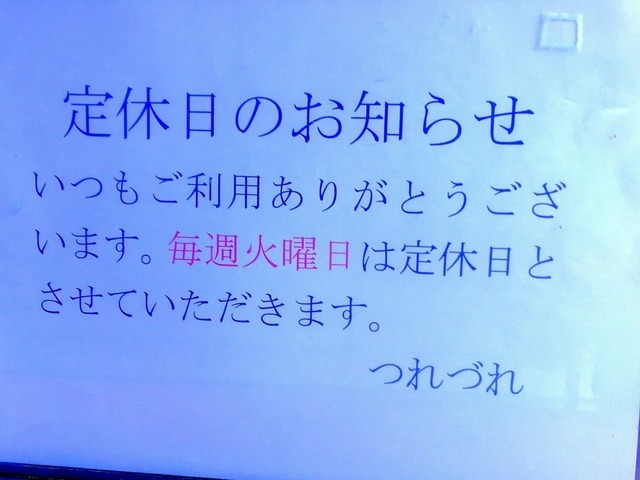 定休日のお知らせ
いつもご利用ありがとうござ
います。毎週火曜日は定休日と
させていただきます。
つれづれ